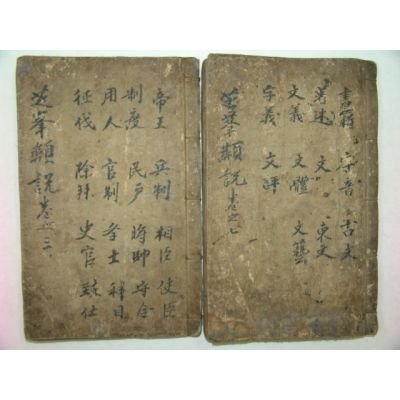 帝王 兵制 相臣 使臣
制度 民戶 將帥 守令
用人 官制 学士 科目
征伐 除拜 史官 致仕
芝峯類說卷之三
書籍 字音 古文
著述 文 東文
文義 文體 文藝
字義 文評
芝峯類說卷之七